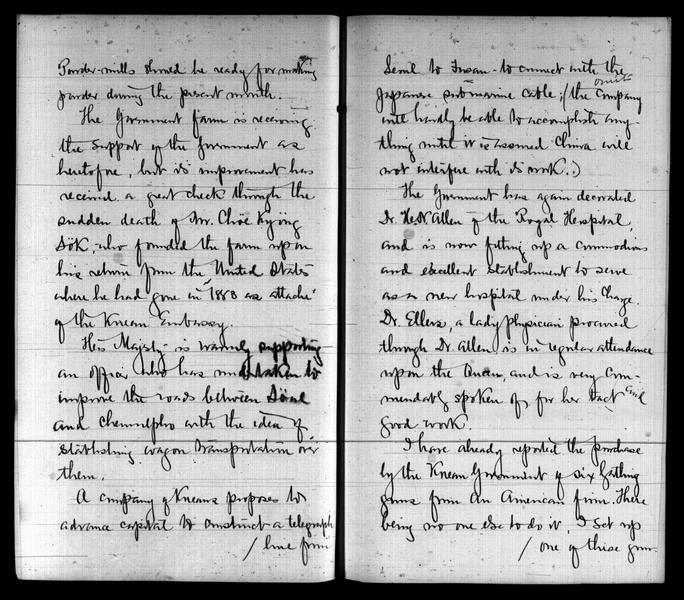 Powder-mills should be ready for making
powder during the present month.
The Government farm is receiving
the support of the Government as
heretofore, but its improvement has
received a great check through the
sudden death of Mr. Chöe Kyöng
Sök, who founded the farm upon
his return from the United States
where he had gone in 1883 as attaché
of the Korean Embassy.
His Majesty is warmly supporting
an officer who has undertaken to
improve the roads between Söul
and Chemulpho with the idea of
establishing wagon transportation over
them.
A company of Koreans proposes to
advance capital to construct a telegraph
/ line from
Seoul to Fusan to connect with the
Japanese submarine cable; (the company
omit
will hardly be able to accomplish any-
thing until it is assured China will
not interfere with its work.)
The Government has again decorated
Dr. H. N. Allen of the Royal Hospital,
and is now fitting up a commodious
and excellent establishment to serve
as a new hospital under his charge.
Dr. Ellers, a lady physician procured
through Dr. Allen, is in regular attendance
upon the Queen, and is very com-
mendably spoken of for her tact and
good work.
I have already reported the purchase
by the Korean Government of six Gatling
guns from an American firm. There
being no one else to do it, I set up
/ one of these guns